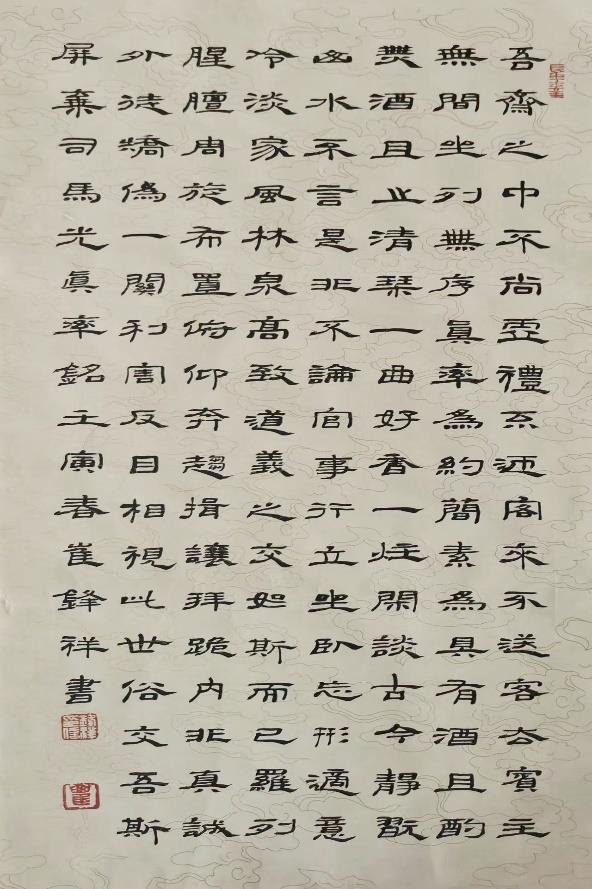 吾齋之中不尚虛禮不迎客來不送客去賓主
無間坐列無序眞率為約簡素為具有酒且酌
無酒且止清琴一曲好香一炷閑談古今靜翫
山水不言是非不論官事行立坐臥忘形適意
冷淡家風林泉高致道義之交如斯而已羅列
腥膻周旋布置俯仰奔趨揖讓拜跪內非真誠
外徒矯偽一關利害反目相視此世俗交吾斯
屏棄司馬光眞率銘壬寅春崔鋒祥書